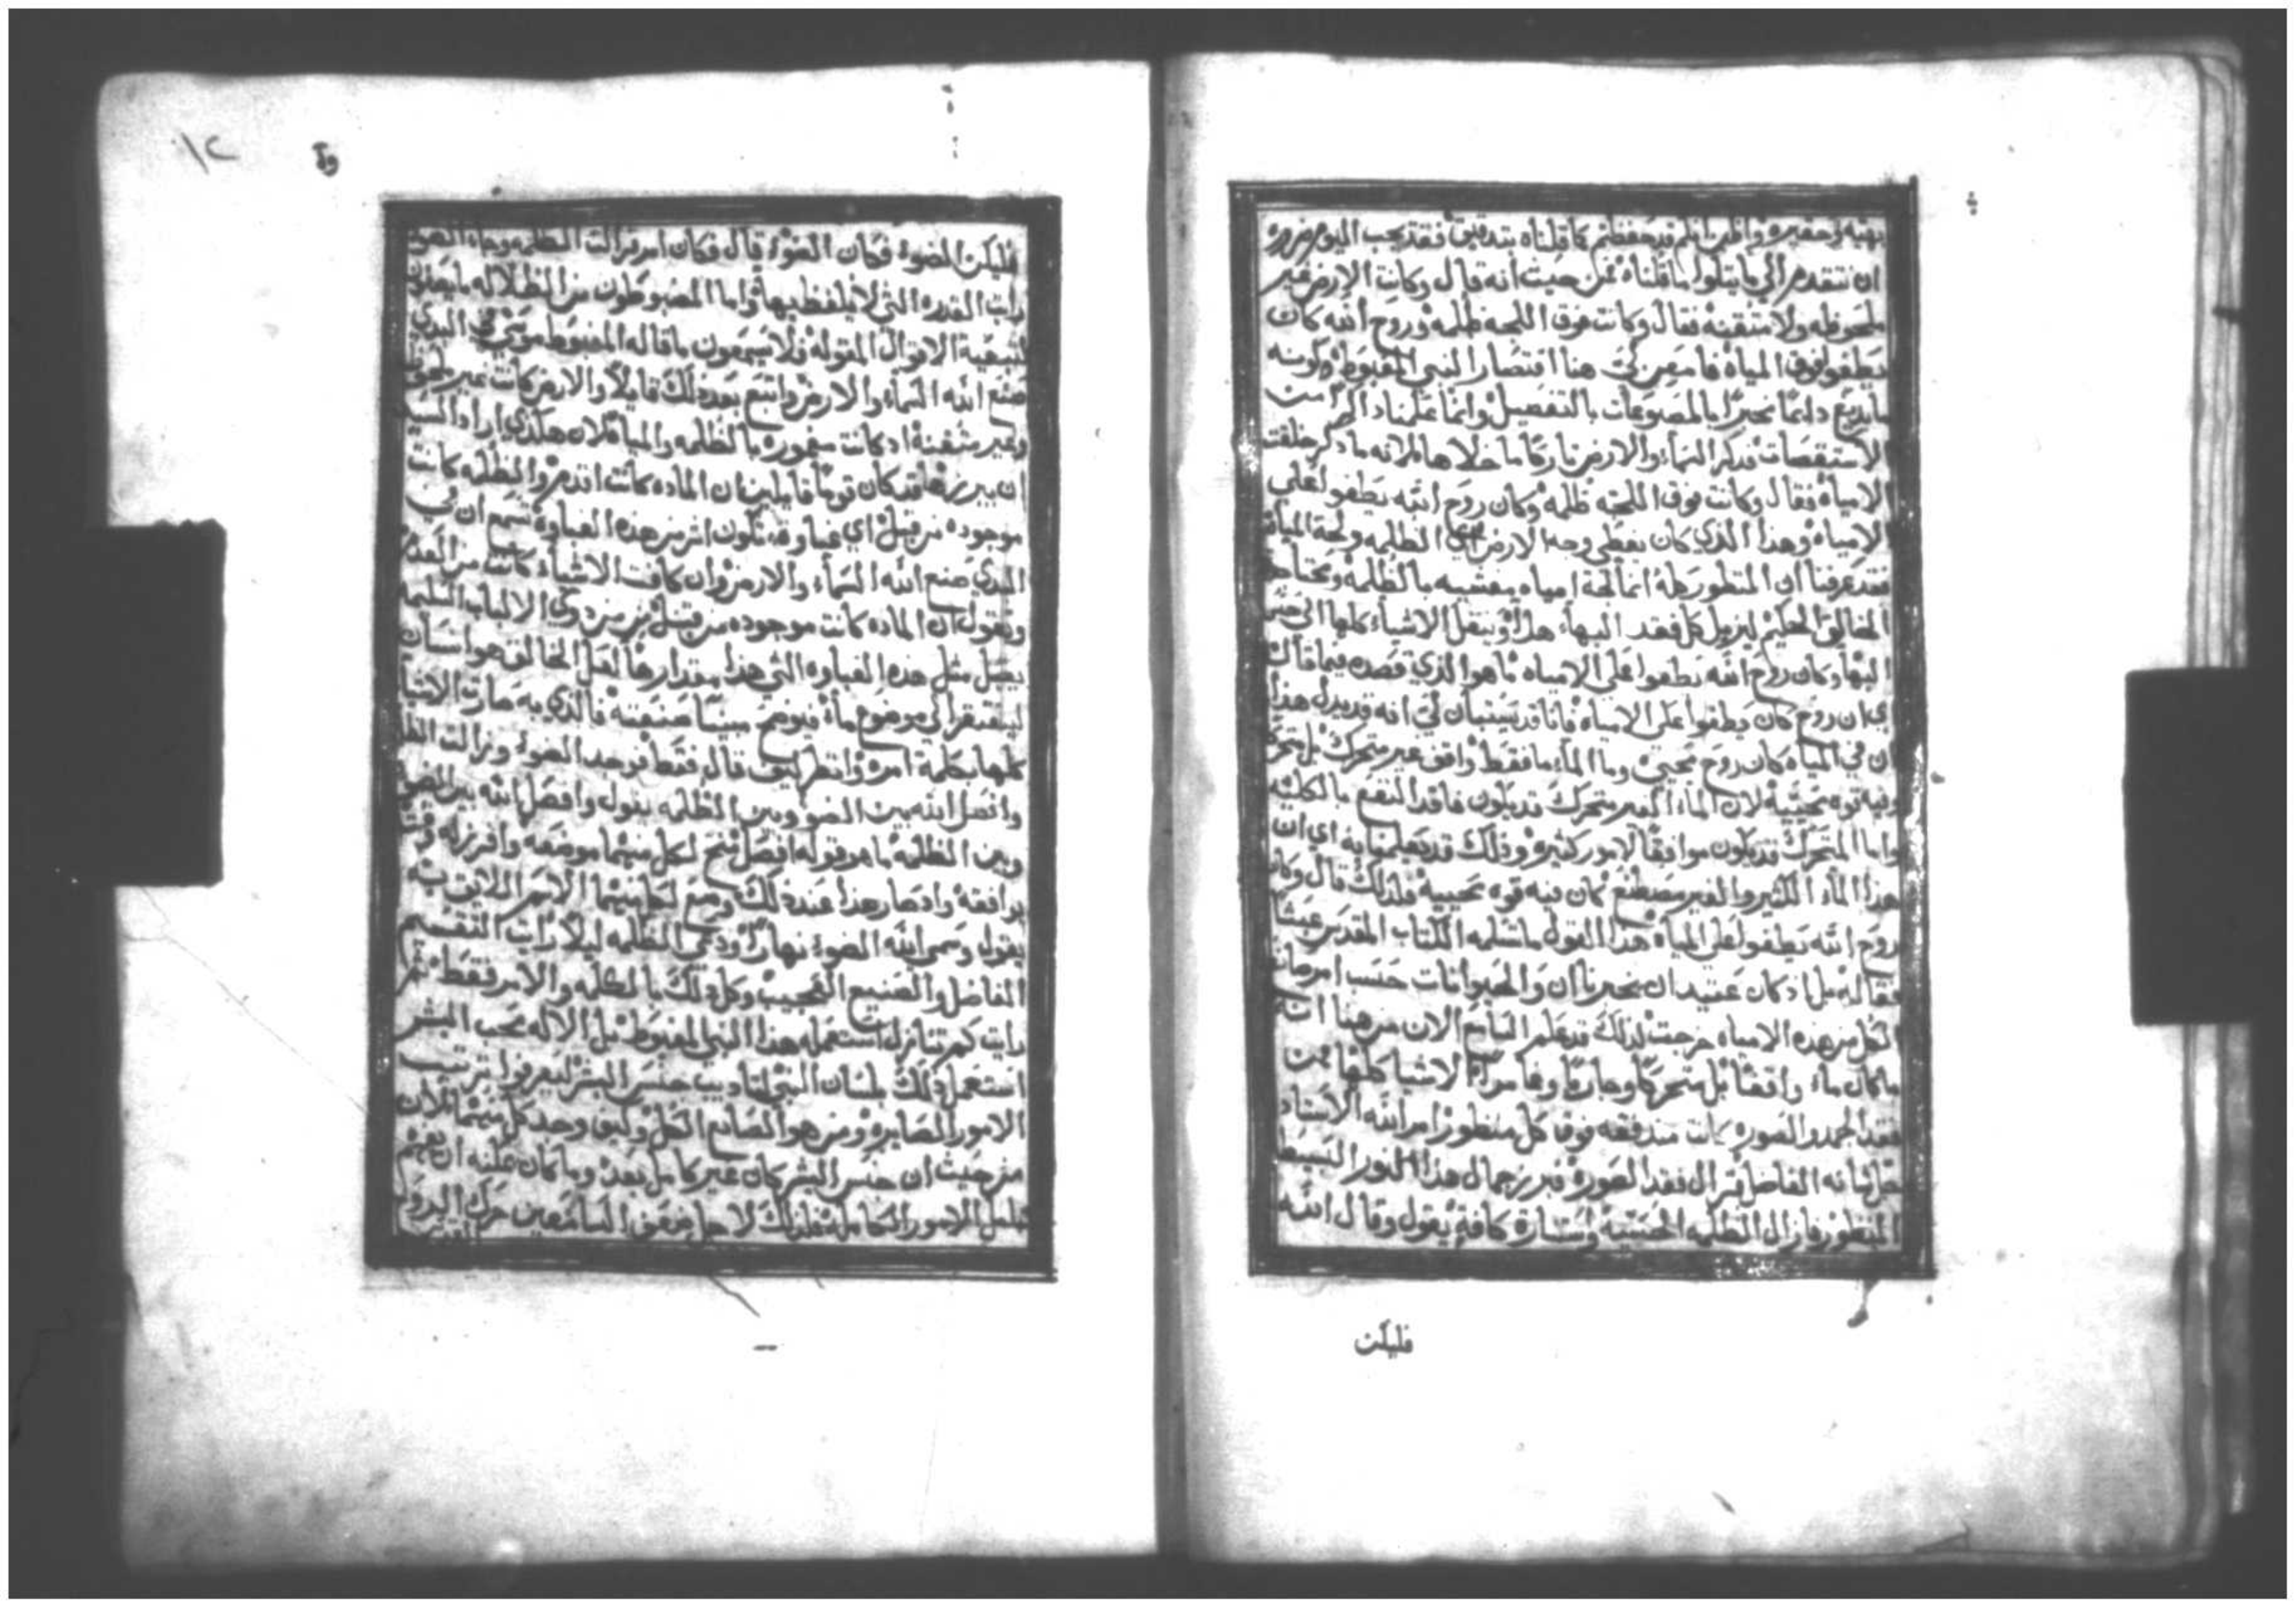 بهيه وحقيره واظن انكم قد حفظتم ما قلناه بتدقيق فقد يجب اليوم ضروره
ان نتقدم الي ما يتلوا ما قلناه فمن حيث انه قال وكانت الارض غير
ملحوظه ولا متقنه فقال وكانت فوق اللجه ظلمه وروح الله كان
يطفوا فوق المياه فامعن لي هنا اقتصار النبي المغبوط وكونه
ما يديع دايما مخبرا بالمصنوعات بالتفصيل وانما علمنا
الاستقصات فذكر السماء والارض تاركا ما خلاها لانه ما ذكر خلقت
الامياه فقال وكانت فوق اللجه ظلمه وكان روح الله يطفوا علي
الامياه وهذا الذي كان يغطي وجه الارض اي الظلمه ولجة المياه
فقد عرفنا ان المنظور كله انما لجة امياه مغشيه بالظلمه ومحتاجه
الخالق الحكيم ليزيل كل فقد البهاء هذا وينقل الاشياء كلها الي حسن
البها وكان روح الله يطفوا علي الامياه ما هو الذي قصده فيما قال
اي ان روح كان يطفوا علي الامياه فانا قد يتبيان لي انه قد يدل هذا
ان في المياه كان روح محيي وما الماء ما فقط واقف غير متحرك بل متحرك
وفيه قوه محييه لان الماء الغير متحرك قد يكون فاقد النفع بالكليه
واما المتحرك قد يكون موافقا لامور كثيره وذلك قد يعلمنا به اي ان
هذا الماء الكثير والغير مصطنع كان فيه قوه محييه فلذلك قال وكان
روح الله يطفوا علي المياه هذا القول ما سلمه الكتاب المقدس عبثا
فقاله بل اذ كان عتيد ان يخبرنا ان والحيوانات حسب امر صانع
الكل من هذه الامياه خرجت لذلك قد علم السامع الان من هنا انه
ما كان ماء واقفا بل متحركا وجاريا وغامرا الاشيا كلها فمن
فقد الجمد والصوره كانت مندفقه فوق كل منظور امر الله الاستاد
الفاضل فزال فقد الصوره فبرز جمال هذا النور البسيط
المنظور فازال الظلمه الحسيه وستاره كافه يقول وقال الله
فليكن
١٢
فليكن الضوء فكان الضوء قال فكان امر فزالت الظلمه وجاء الضوء
رايت القدره التي لا يلفظ بها واما المضبوطون من الظلاله ما يصغون
لتبعية الاقوال المقوله ولا يسمعون ما قاله المغبوط موسي في البدي
صنع الله السماء والارض واتبع بعد ذلك قايلا والارض كانت غير ملحوظه
وغير متقنه اذ كانت مغموره بالظلمه والمياه لان هكذي اراد السيد
ان يبرزها قد كان قوما قايلين ان الماده كانت اقدم والظلمه كانت
موجوده من قبل اي غباوه تكون اشر من هذه الغباوه تسمع ان في
البدي صنع الله السماء والارض وان كافت الاشياء كانت من العدم
وتقول ان الماده كانت موجوده من قبل فمن من ذوي الالباب السليمه
يقبل مثل هذه الغباوه التي هذا مقدارها لعل الخالق هو انسان
ليفتقر الي موضوع ماء فيوضح مبينا صنعته فالذي به صارت الاشيا
كلها بكلمة امره وانظر كيف قال فقط فوجد الضوء وزالت الظلمه
وافصل الله بين الضوء وبين الظلمه يقول وافصل الله بين الضوء
وبين الظلمه ما هو قوله افصل منح لكل منهما موضعه وافرز له وقتا
يوافقه واذ صار هذا عند ذلك وضع لكل منهما الاسم اللايق به
يقول وسمي الله الضوء نهارا ودعي الظلمه ليلا رايت التقسيم
الفاضل والصنيع العجيب وكل ذلك بالكلمه والامر فقط ثم
رايت كم تنازل استعمله هذا النبي المغبوط بل الاله محب البشر
استعمل ذلك بلسان النبي لتاديب جنس البشر ليعرفوا ترتيب
الامور الصايره ومن هو الصانع الكل وكيف وجد كل منهما لان
من حيث ان جنس البشر كان غير كامل بعد وما كان يمكنه ان يفهم
الامور الكامله فلذلك لاجل ضعف السامعين حرك الروح
القدس